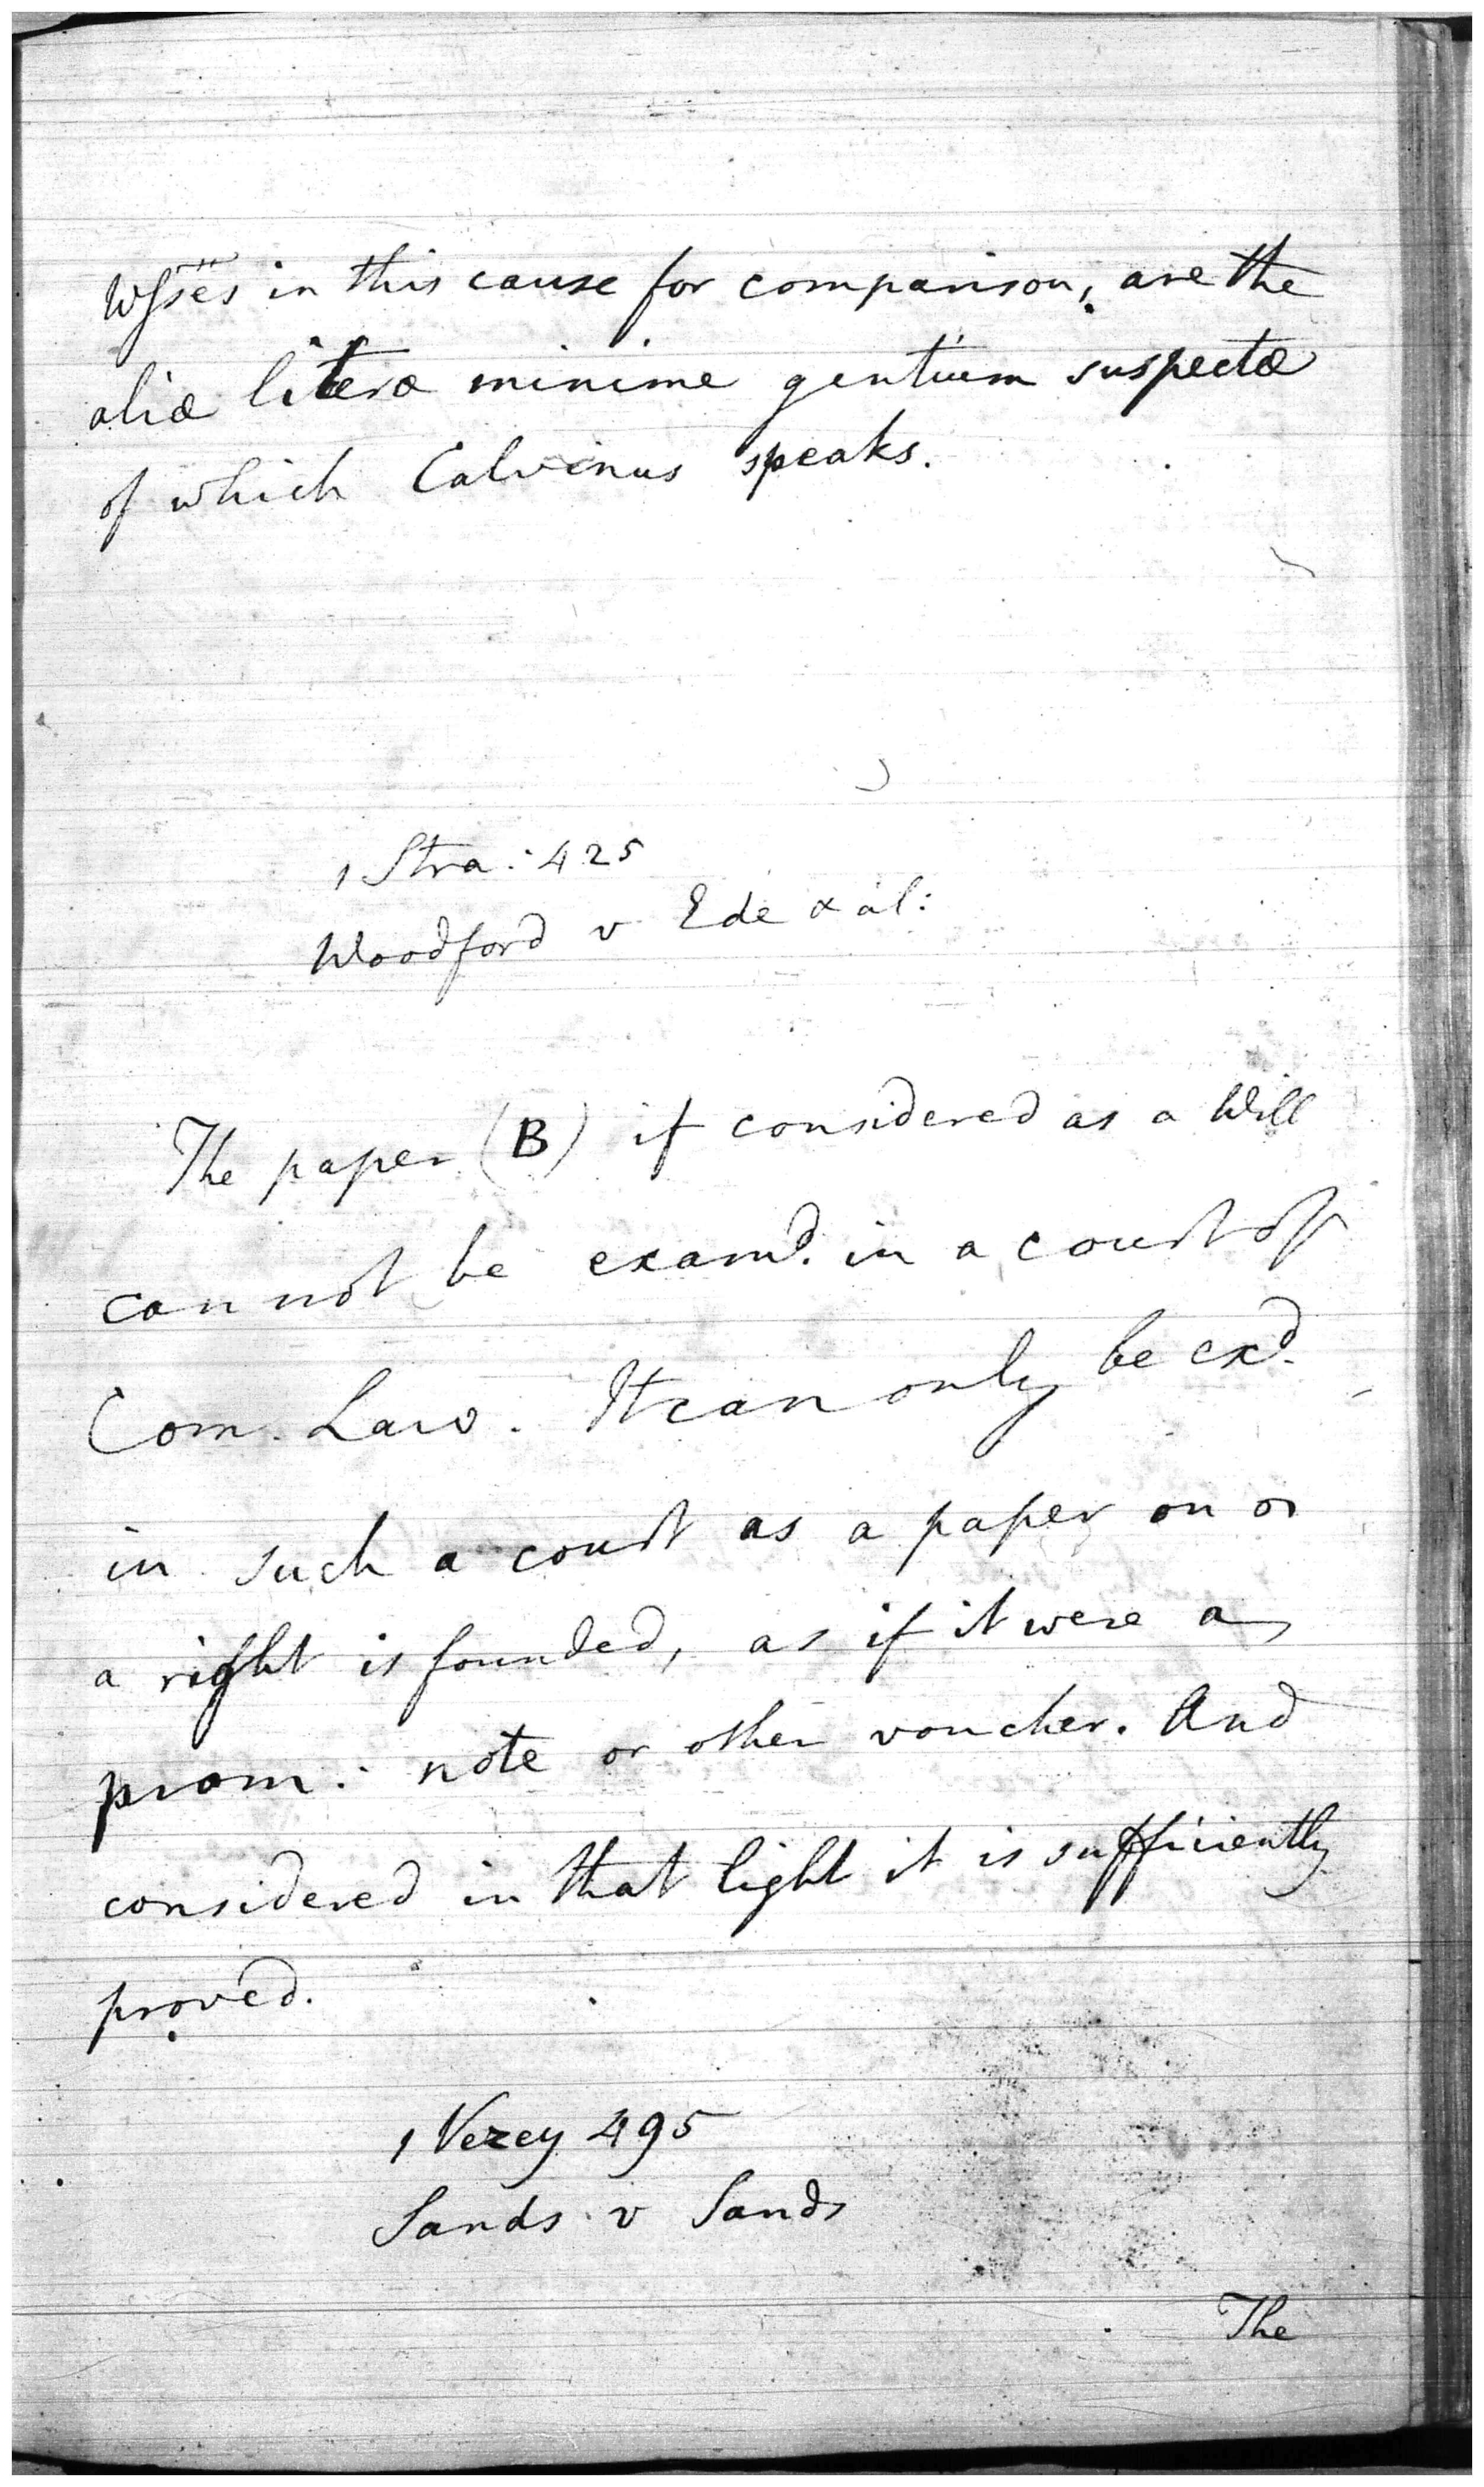 Wsses in this cause for comparison, are the
aliæ literæ minime gentium suspectæ
of which Calvinus speaks.
1 Stra: 425
Woodford v Ede & al:
The paper (B) if considered as a Will
cannot be examd. in a court of
Com. Law. It can only be exd.
in such a court as a paper on
a right is founded, as if it were a
prom: note or other voucher. And
considered in that light it is sufficiently
proved.
1 Vezey 495
Sands v Sands
The